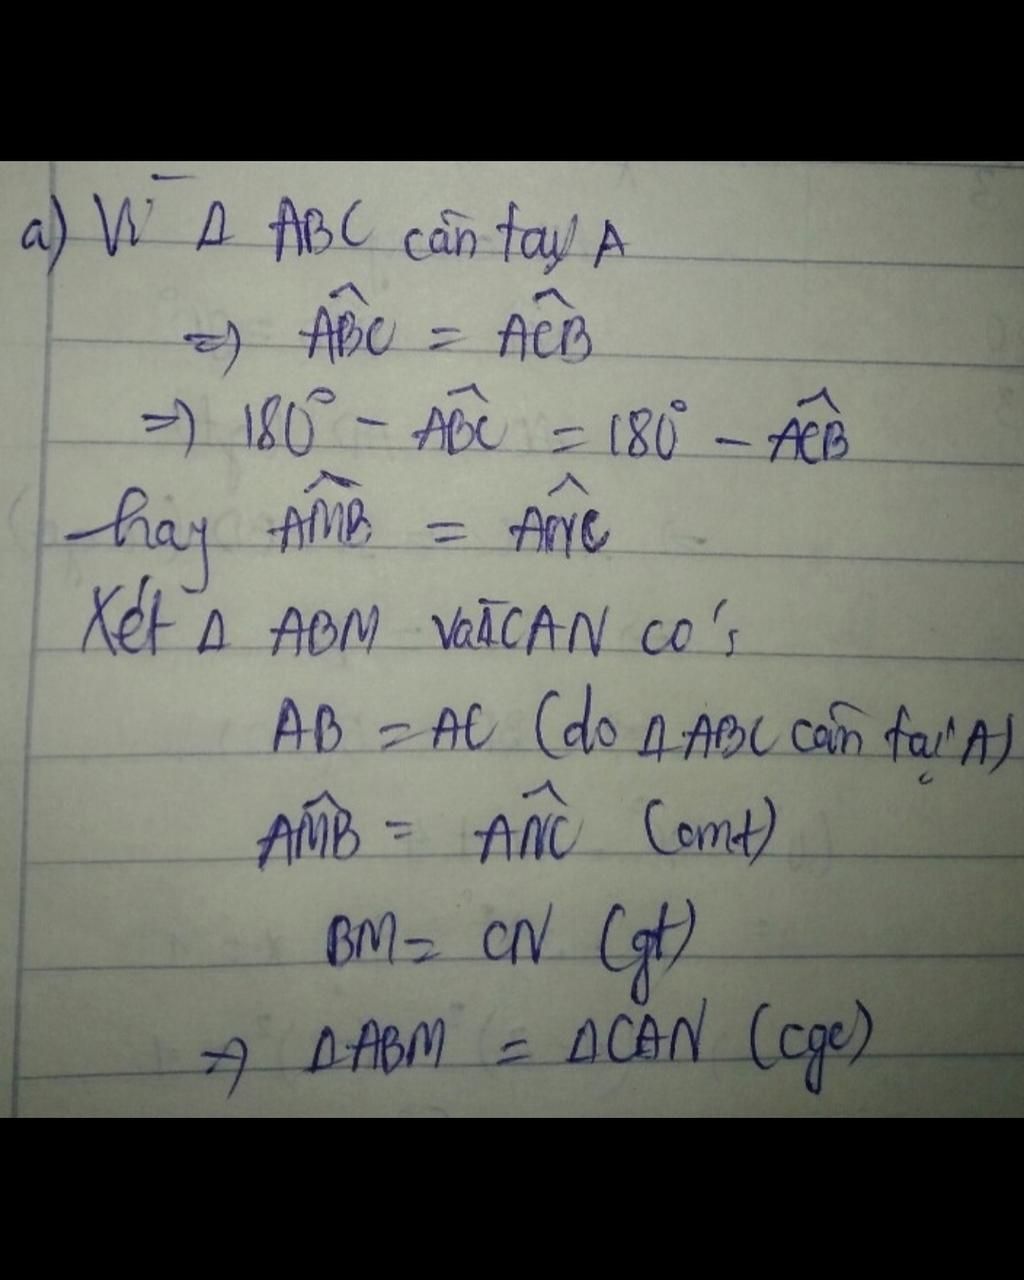 a) Vì Δ ABC cân tại A
=) ABC = ACB
=) 180° - ABC = 180° - ACB
hay AMB = ANC
Xét Δ ABM và ΔCAN có:
AB = AC (do ΔABC cân tại A)
AMB = ANC (cmt)
BM = CN (gt)
=) ΔABM = ΔCAN (cgc)